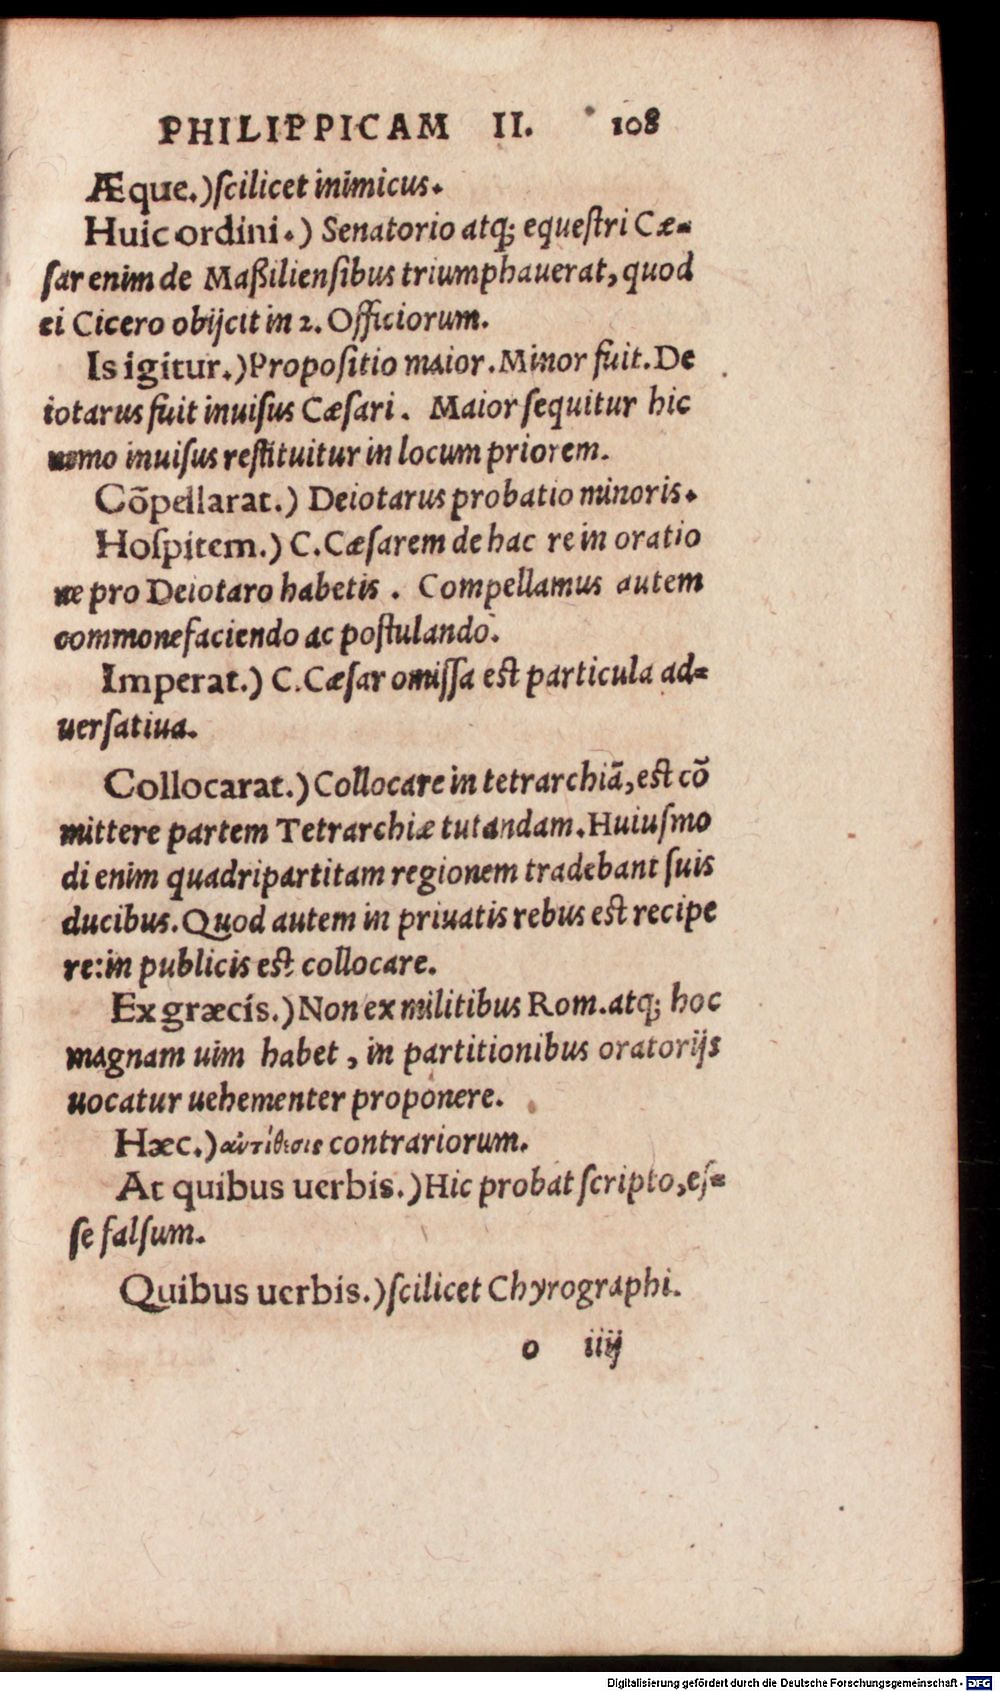 PHILIPPICAM II. 108
Æque.) ſcilicet inimicus.
Huic ordini.) Senatorio atq; equeſtri Cæ-
ſar enim de Maßilienſibus triumphauerat, quod
ei Cicero obijcit in 2. Officiorum.
Is igitur.) Propoſitio maior. Minor fuit. De
iotarus fuit inuiſus Cæſari. Maior ſequitur hic
nemo inuiſus reſtituitur in locum priorem.
Cõpellarat.) Deiotarus probatio minoris.
Hoſpitem.) C. Cæſarem de hac re in oratio
ne pro Deiotaro habetis. Compellamus autem
commonefaciendo ac poſtulando.
Imperat.) C. Cæſar omiſſa eſt particula ad-
uerſatiua.
Collocarat.) Collocare in tetrarchiã, eſt cõ
mittere partem Tetrarchiæ tutandam. Huiuſmo
di enim quadripartitam regionem tradebant ſuis
ducibus. Quod autem in priuatis rebus eſt recipe
re: in publicis eſt collocare.
Ex græcis.) Non ex militibus Rom. atq; hoc
magnam uim habet, in partitionibus oratorijs
uocatur uehementer proponere.
Hæc.) αὐτίθεσις contrariorum.
At quibus uerbis.) Hic probat ſcripto, eſ-
ſe falſum.
Quibus uerbis.) ſcilicet Chyrographi.
o iiij
Digitalisierung gefördert durch die Deutsche Forschungsgemeinschaft - DFG